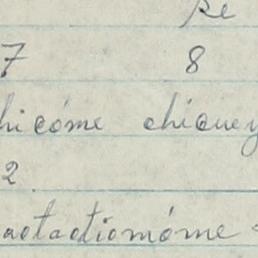 re
7 8
hicóme chicuey
2
aotactiomóme